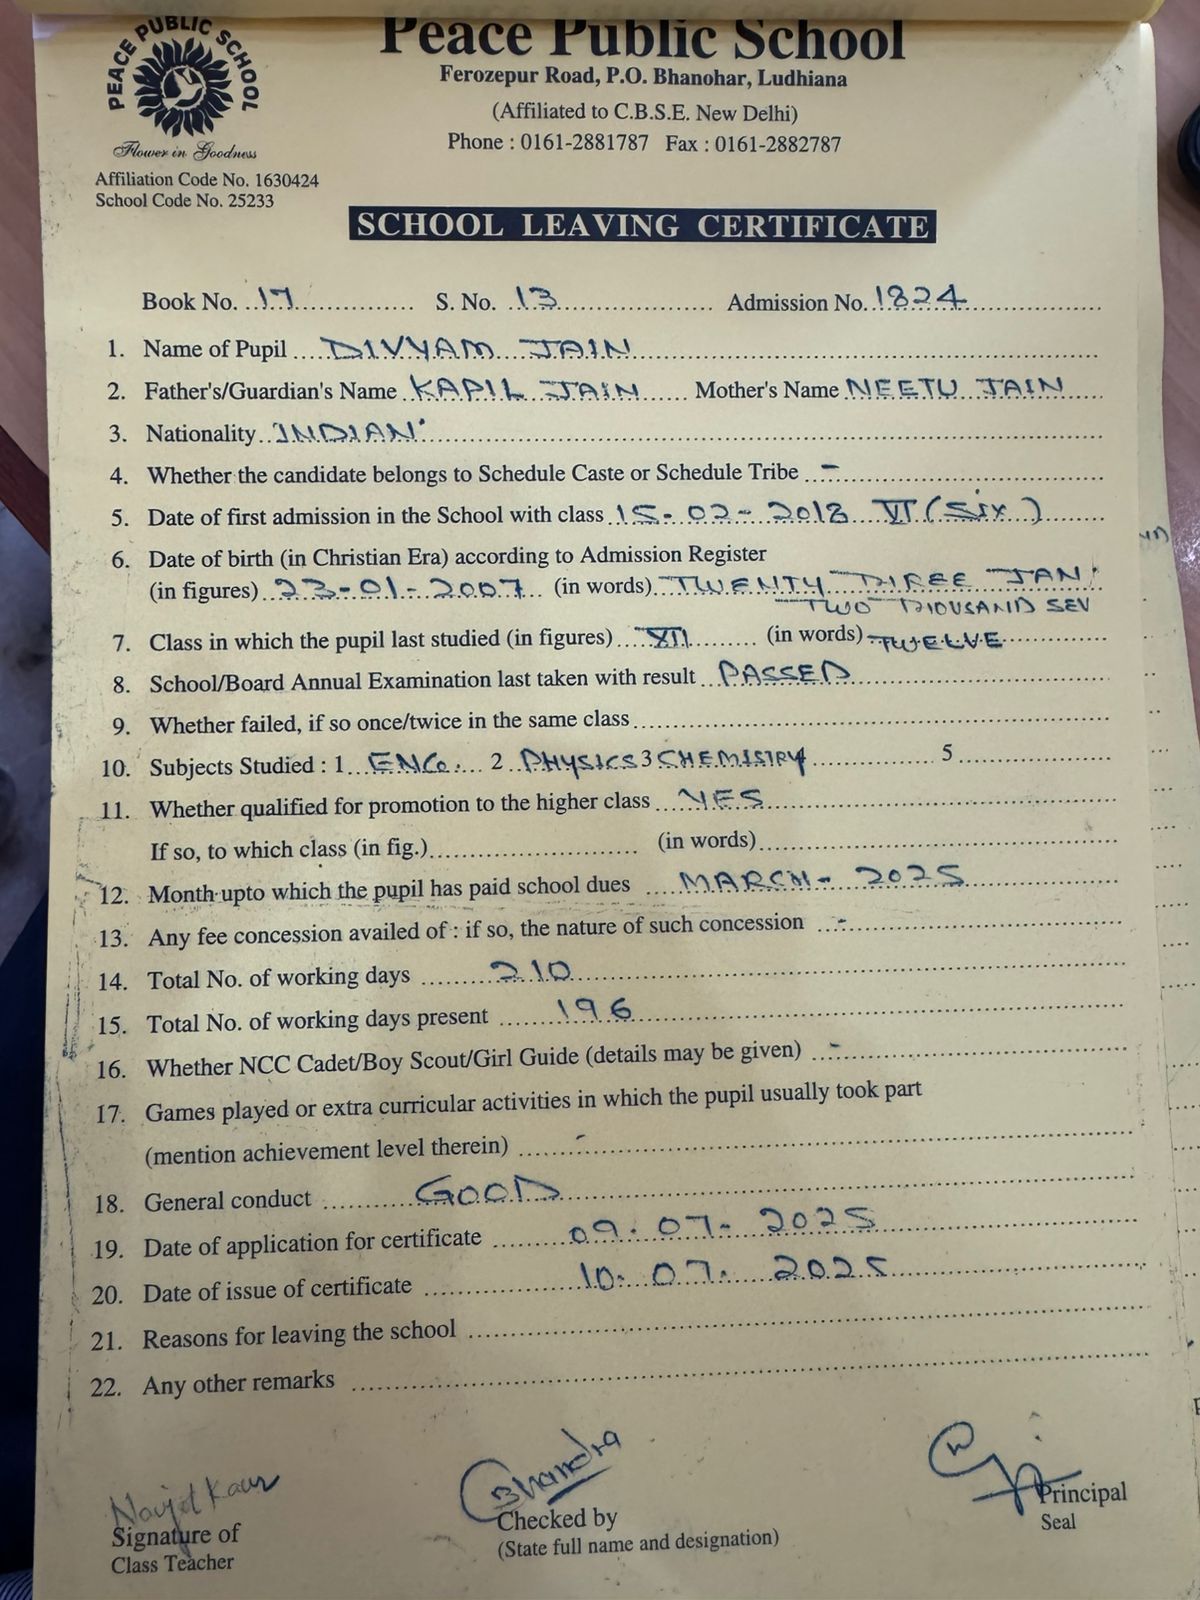 Peace Public School
PEACE PUBLIC SCHOOL
Ferozepur Road, P.O. Bhanohar, Ludhiana
(Affiliated to C.B.S.E. New Delhi)
Phone : 0161-2881787 Fax : 0161-2882787
Flower in Goodness
Affiliation Code No. 1630424
School Code No. 25233
SCHOOL LEAVING CERTIFICATE
Book No. 17 S. No. 13 Admission No. 1824
1. Name of Pupil DIVYAM JAIN
2. Father's/Guardian's Name KAPIL JAIN Mother's Name NEETU JAIN
3. Nationality INDIAN
4. Whether the candidate belongs to Schedule Caste or Schedule Tribe -
5. Date of first admission in the School with class 15-02-2018 VI (Six)
6. Date of birth (in Christian Era) according to Admission Register
(in figures) 23-01-2007 (in words) TWENTY THREE JAN
TWO THOUSAND SEV
7. Class in which the pupil last studied (in figures) XII (in words) TWELVE
8. School/Board Annual Examination last taken with result PASSED
9. Whether failed, if so once/twice in the same class
10. Subjects Studied : 1 ENG. 2 PHYSICS 3 CHEMISTRY 5
11. Whether qualified for promotion to the higher class YES
If so, to which class (in fig.) (in words)
12. Month upto which the pupil has paid school dues MARCH - 2025
13. Any fee concession availed of : if so, the nature of such concession -
14. Total No. of working days 210
15. Total No. of working days present 196
16. Whether NCC Cadet/Boy Scout/Girl Guide (details may be given) -
17. Games played or extra curricular activities in which the pupil usually took part
(mention achievement level therein) -
18. General conduct GOOD
19. Date of application for certificate 09.07.2025
20. Date of issue of certificate 10.07.2025
21. Reasons for leaving the school
22. Any other remarks
Navjot Kaur
Bhandra
Signature of
Class Teacher
Checked by
(State full name and designation)
Principal
Seal